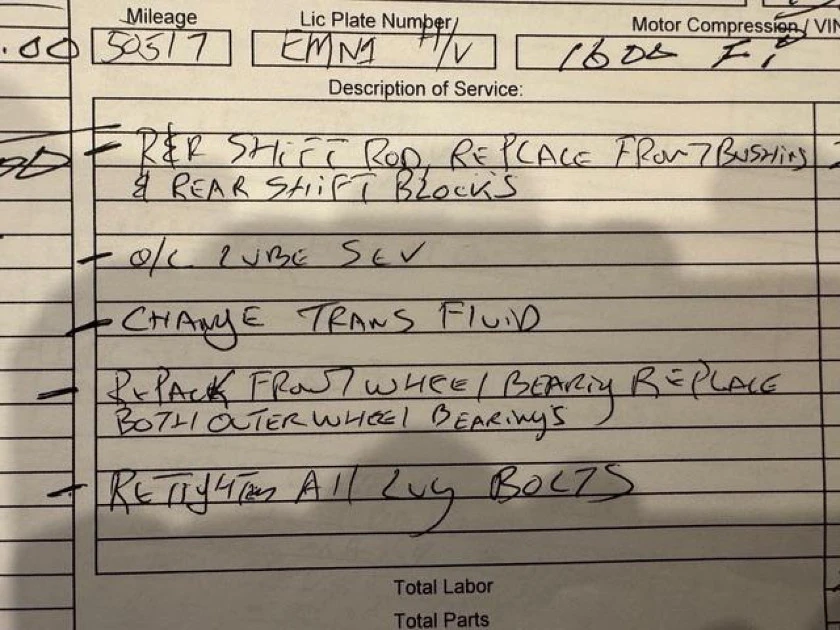 Mileage
Lic Plate Number
Motor Compression / VIN
.00
50517
EMN1 H/V
1600 Fi
Description of Service:
R&R SHIFT ROD, REPLACE FRONT BUSHING
& REAR SHIFT BLOCKS
O/C LUBE SEV
CHANGE TRANS FLUID
REPACK FRONT WHEEL BEARING REPLACE
BOTH OUTER WHEEL BEARING'S
RETIGHTEN All Lug BOLTS
Total Labor
Total Parts